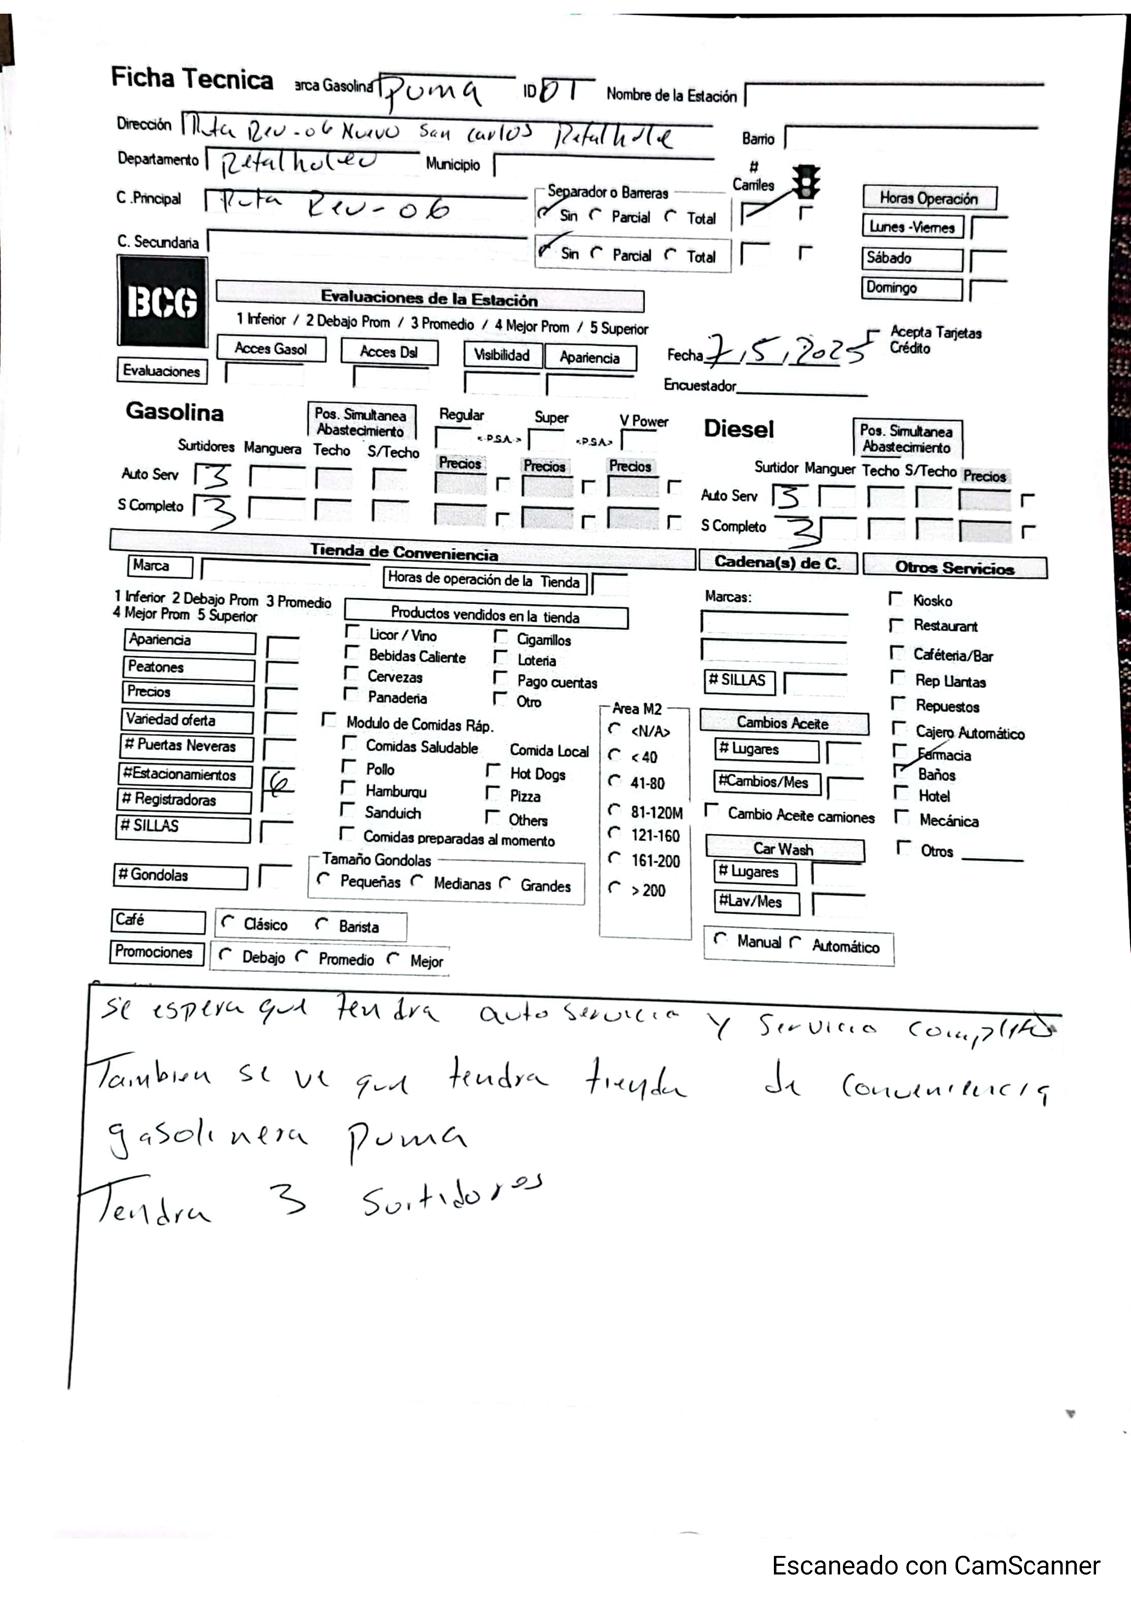 Ficha Tecnica arca Gasolina Puma ID DT Nombre de la Estación
Dirección Ruta Reu-06 Nuevo San Carlos Retalhuleu Barrio
Departamento Retalhuleu Municipio
# Carriles
C .Principal Ruta Reu-06 Separador o Barreras
Sin Parcial Total
Horas Operación
Lunes -Viernes
C. Secundaria Sin Parcial Total
Sábado
Domingo
BCG
Evaluaciones de la Estación
1 Inferior / 2 Debajo Prom / 3 Promedio / 4 Mejor Prom / 5 Superior
Acces Gasol Acces Dsl Visibilidad Apariencia
Evaluaciones
Fecha 7,5,2025 Acepta Tarjetas Crédito
Encuestador
Gasolina Pos. Simultanea Abastecimiento Regular <-P.S.A.-> Super <-P.S.A.> V Power Diesel Pos. Simultanea Abastecimiento
Surtidores Manguera Techo S/Techo Precios Precios Precios Surtidor Manguer Techo S/Techo Precios
Auto Serv 3 Auto Serv 3
S Completo 3 S Completo 3
Tienda de Conveniencia Cadena(s) de C. Otros Servicios
Marca Horas de operación de la Tienda
1 Inferior 2 Debajo Prom 3 Promedio
4 Mejor Prom 5 Superior
Apariencia
Peatones
Precios
Variedad oferta
# Puertas Neveras
#Estacionamientos 6
# Registradoras
# SILLAS
# Gondolas
Productos vendidos en la tienda
Licor / Vino Cigarrillos
Bebidas Caliente Loteria
Cervezas Pago cuentas
Panaderia Otro
Modulo de Comidas Ráp.
Comidas Saludable Comida Local
Pollo Hot Dogs
Hamburqu Pizza
Sanduich Others
Comidas preparadas al momento
Tamaño Gondolas
Pequeñas Medianas Grandes
Area M2
<N/A>
< 40
41-80
81-120M
121-160
161-200
> 200
Marcas:
# SILLAS
Cambios Aceite
# Lugares
#Cambios/Mes
Cambio Aceite camiones
Car Wash
# Lugares
#Lav/Mes
Manual Automático
Kiosko
Restaurant
Caféteria/Bar
Rep Llantas
Repuestos
Cajero Automático
Farmacia
Baños
Hotel
Mecánica
Otros
Café Clásico Barista
Promociones Debajo Promedio Mejor
se espera que tendra auto servicio y servicio completo
Tambien se ve que tendra tienda de conveniencia
gasolinera puma
Tendra 3 surtidores
Escaneado con CamScanner